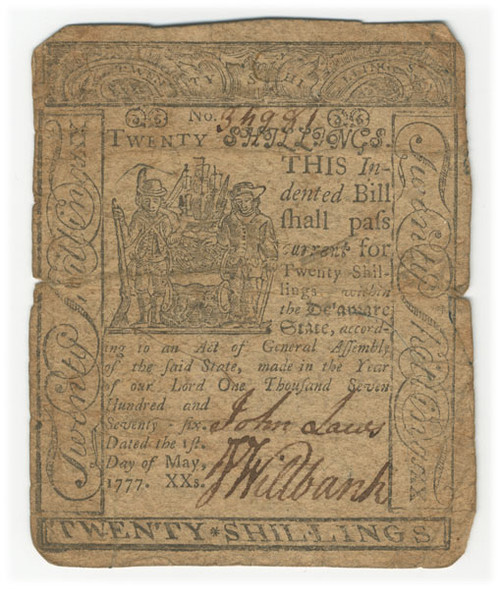 TWENTY SHILLINGS
No.
TWENTY SHILLINGS.
THIS In-
dented Bill
ſhall paſs
current for
Twenty Shil-
lings within
the Delaware
State, accord-
ing to an Act of General Aſſembly
of the ſaid State, made in the Year
of our Lord One Thouſand Seven
Hundred and
Seventy-ſix.
Dated the 1ſt.
Day of May,
1777. XXs.
John Laws
J Wiltbank
Twenty Shillings XX
Twenty Shillings XX
TWENTY*SHILLINGS